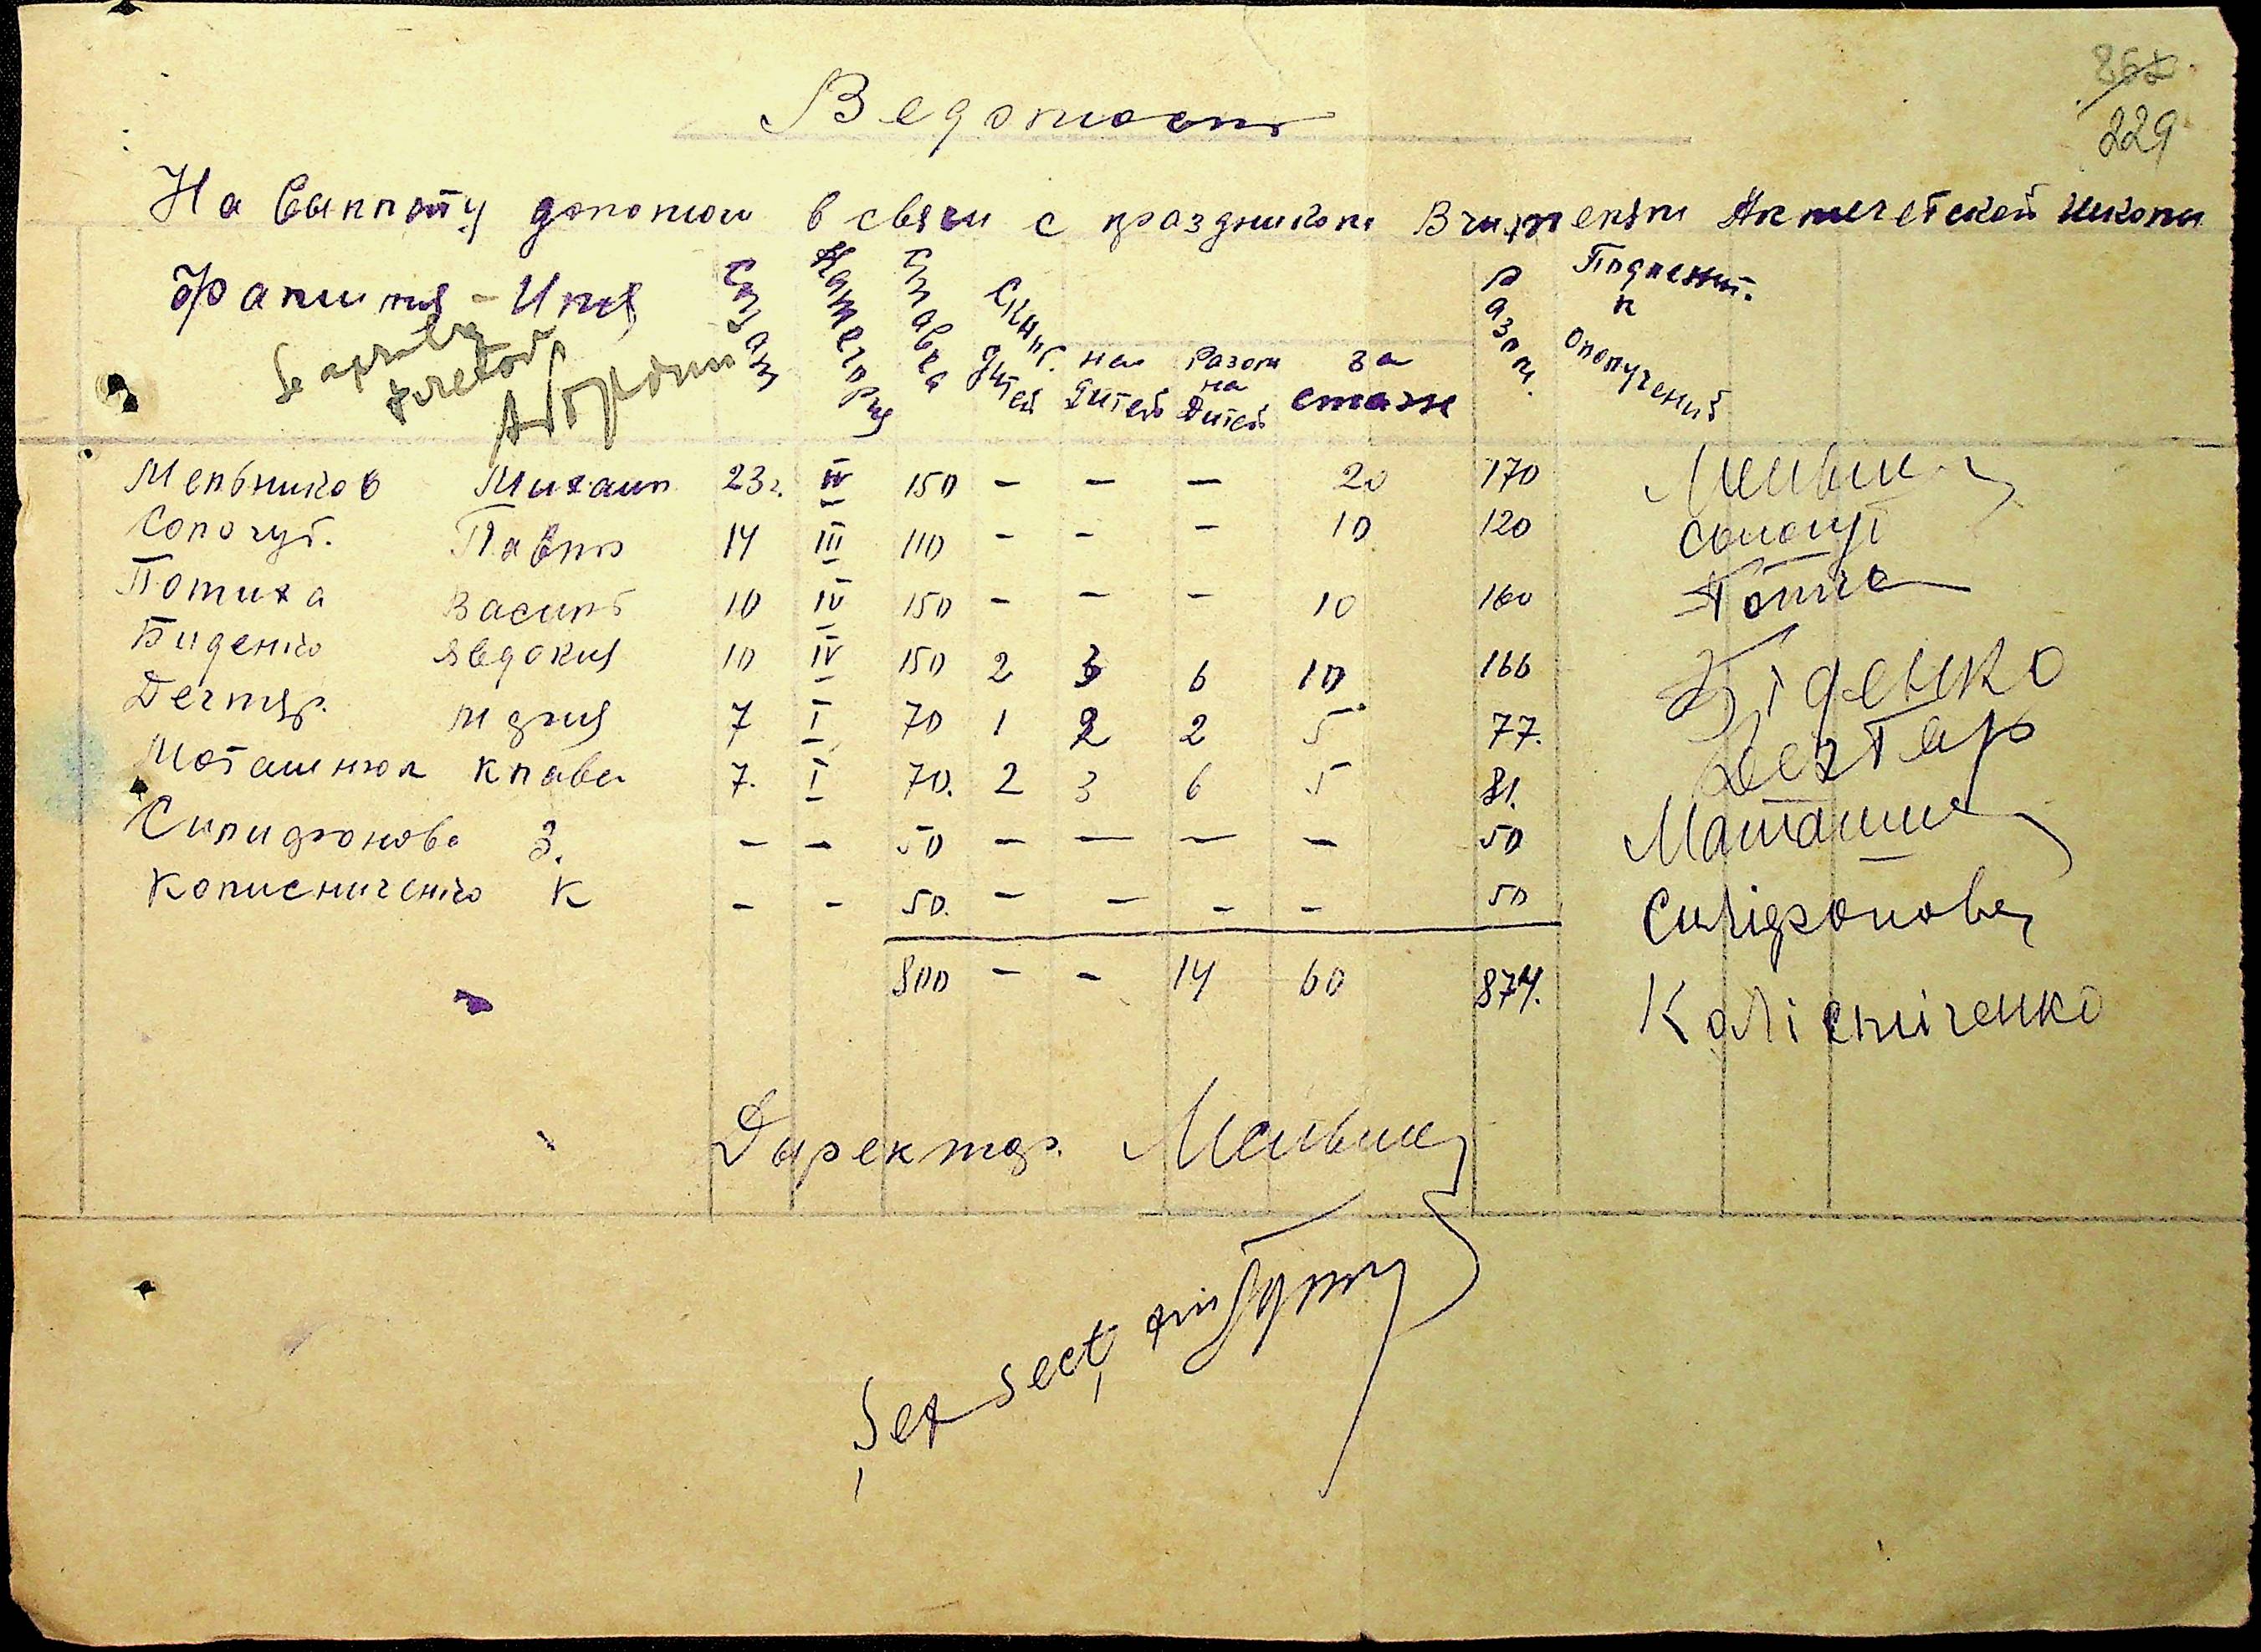 267
229
Ведомость
На выплоту допомои в связи с праздником Вчителям Акмечетской школи
Фамилия - Имя Стаж Категория Ставка Скилт. дитей на дитей Разом на дитей за стаж Разом. Подпесит. к ополучений
Se aprobă
pretor
Мельников Михаил 23г. IV 150 – – – 20 170 Мельник
Сологуб. Павло 14 III 110 – – – 10 120 Сологуб
Потиха Василь 10 IV 150 – – – 10 160 Потиха
Биденко Явдокия 10 IV 150 2 3 6 10 166 Біденко
Дегтяр. Лидия 7 I 70 1 2 2 5 77. Дегтяр
Моташнюк Клава 7. I 70. 2 3 6 5 81. Маташню
Силифонова З. – – 50 – – – – 50 Силіфонова
Колисниченко К – – 50. – – – – 50 Колісніченко
800 – – 14 60 874.
Директор. Мельник
Șef secț